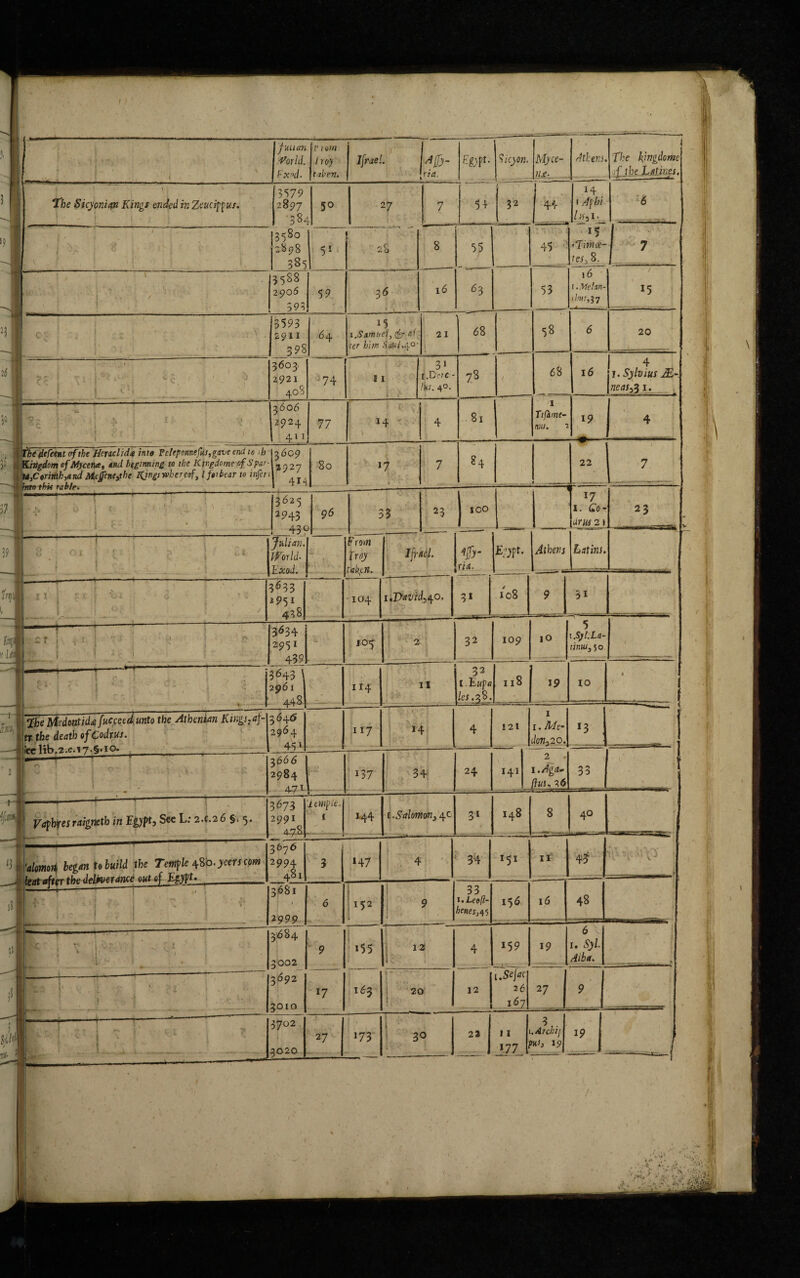 Julian World. Exod. | From Troy taken. | Israel. | Assyria. | Egypt. | Sicyon. | Mycenæ. | Athens. | The kingdome of the Latines.
The Sicyonian Kings ended in Zeucippus. | 3579 2897 384 | 50 | 27 | 7 | 54 | 32 | 44 | 14 1 Aphi | 6
3580 2898 385 | 51 | 28 | 8 | 55 | 45 | 15 Timœtes, 8. | 7
3588 2906 393 | 59 | 36 | 16 | 63 | 53 | 16 1. Melanthus, 37 | 15
3593 2911 398 | 64 | 15 1. Samuel, & after him Saul. 40 | 21 | 68 | 58 | 6 | 20
3603 2921 408 | 74 | 11 | 31 1. 40. | 78 | 68 | 16 | 4 1. Sylvius Æneas, 31.
3606 2924 411 | 77 | 14 | 4 | 81 | 1 Tisamenus. | 19 | 4
The descent of the Heraclidæ into Peleponnesus, gave end to the Kingdom of Mycenæ, and beginning to the Kingdome of Spar-
Corinth, and Messene, the Kings whereof, I forbear to insert
into this table. | 3609 2927 414 | 80 | 17 | 7 | 84 | 22 | 7
3625 2943 430 | 96 | 33 | 23 | 100 | 17 1. Codrus 21 | 23
Julian. World. Exod. | From Troy taken. | Israel. | Assyria. | Egypt. | Athens | Latins.
3633 2951 438 | 104 | 1. David, 40. | 31 | 108 | 9 | 31
3634 2951 439 | 105 | 2 | 32 | 109 | 10 | 5 1. Syl. Latinus, 50
3643 2961 448 | 114 | 11 | 32 1 Eupales. 38. | 118 | 19 | 10
The Medontidæ succeed unto the Athenian Kings, af-
ter the death of Codrus.
lib. 2. c. 17. §. 10. | 3646 2964 451 | 117 | 14 | 4 | 121 | 1 1. Medon, 20. | 13
3666 2984 471 | 137 | 34 | 24 | 141 | 2 1. Agastus. 36 | 33
Vaphres raigneth in Egypt, See L: 2. c. 26 §. 5. | 3673 2991 478 | Temple. 1 | 144 | 1. Salomon, 40 | 31 | 148 | 8 | 40
alomon began to build the Temple 480. yeers com
leat after the deliverance out of Egypt. | 3676 2994 481 | 3 | 147 | 4 | 34 | 151 | 11 | 43
3681 2999 | 6 | 152 | 9 | 33 1. Leosthenes, 45 | 156 | 16 | 48
3684 3002 | 9 | 155 | 12 | 4 | 159 | 19 | 6 1. Syl. Alba.
3692 3010 | 17 | 163 | 20 | 12 | 1. Sesac 26 167 | 27 | 9
3702 3020 | 27 | 173 | 30 | 22 | 11 177 | 3 1. Archippus, 19 | 19